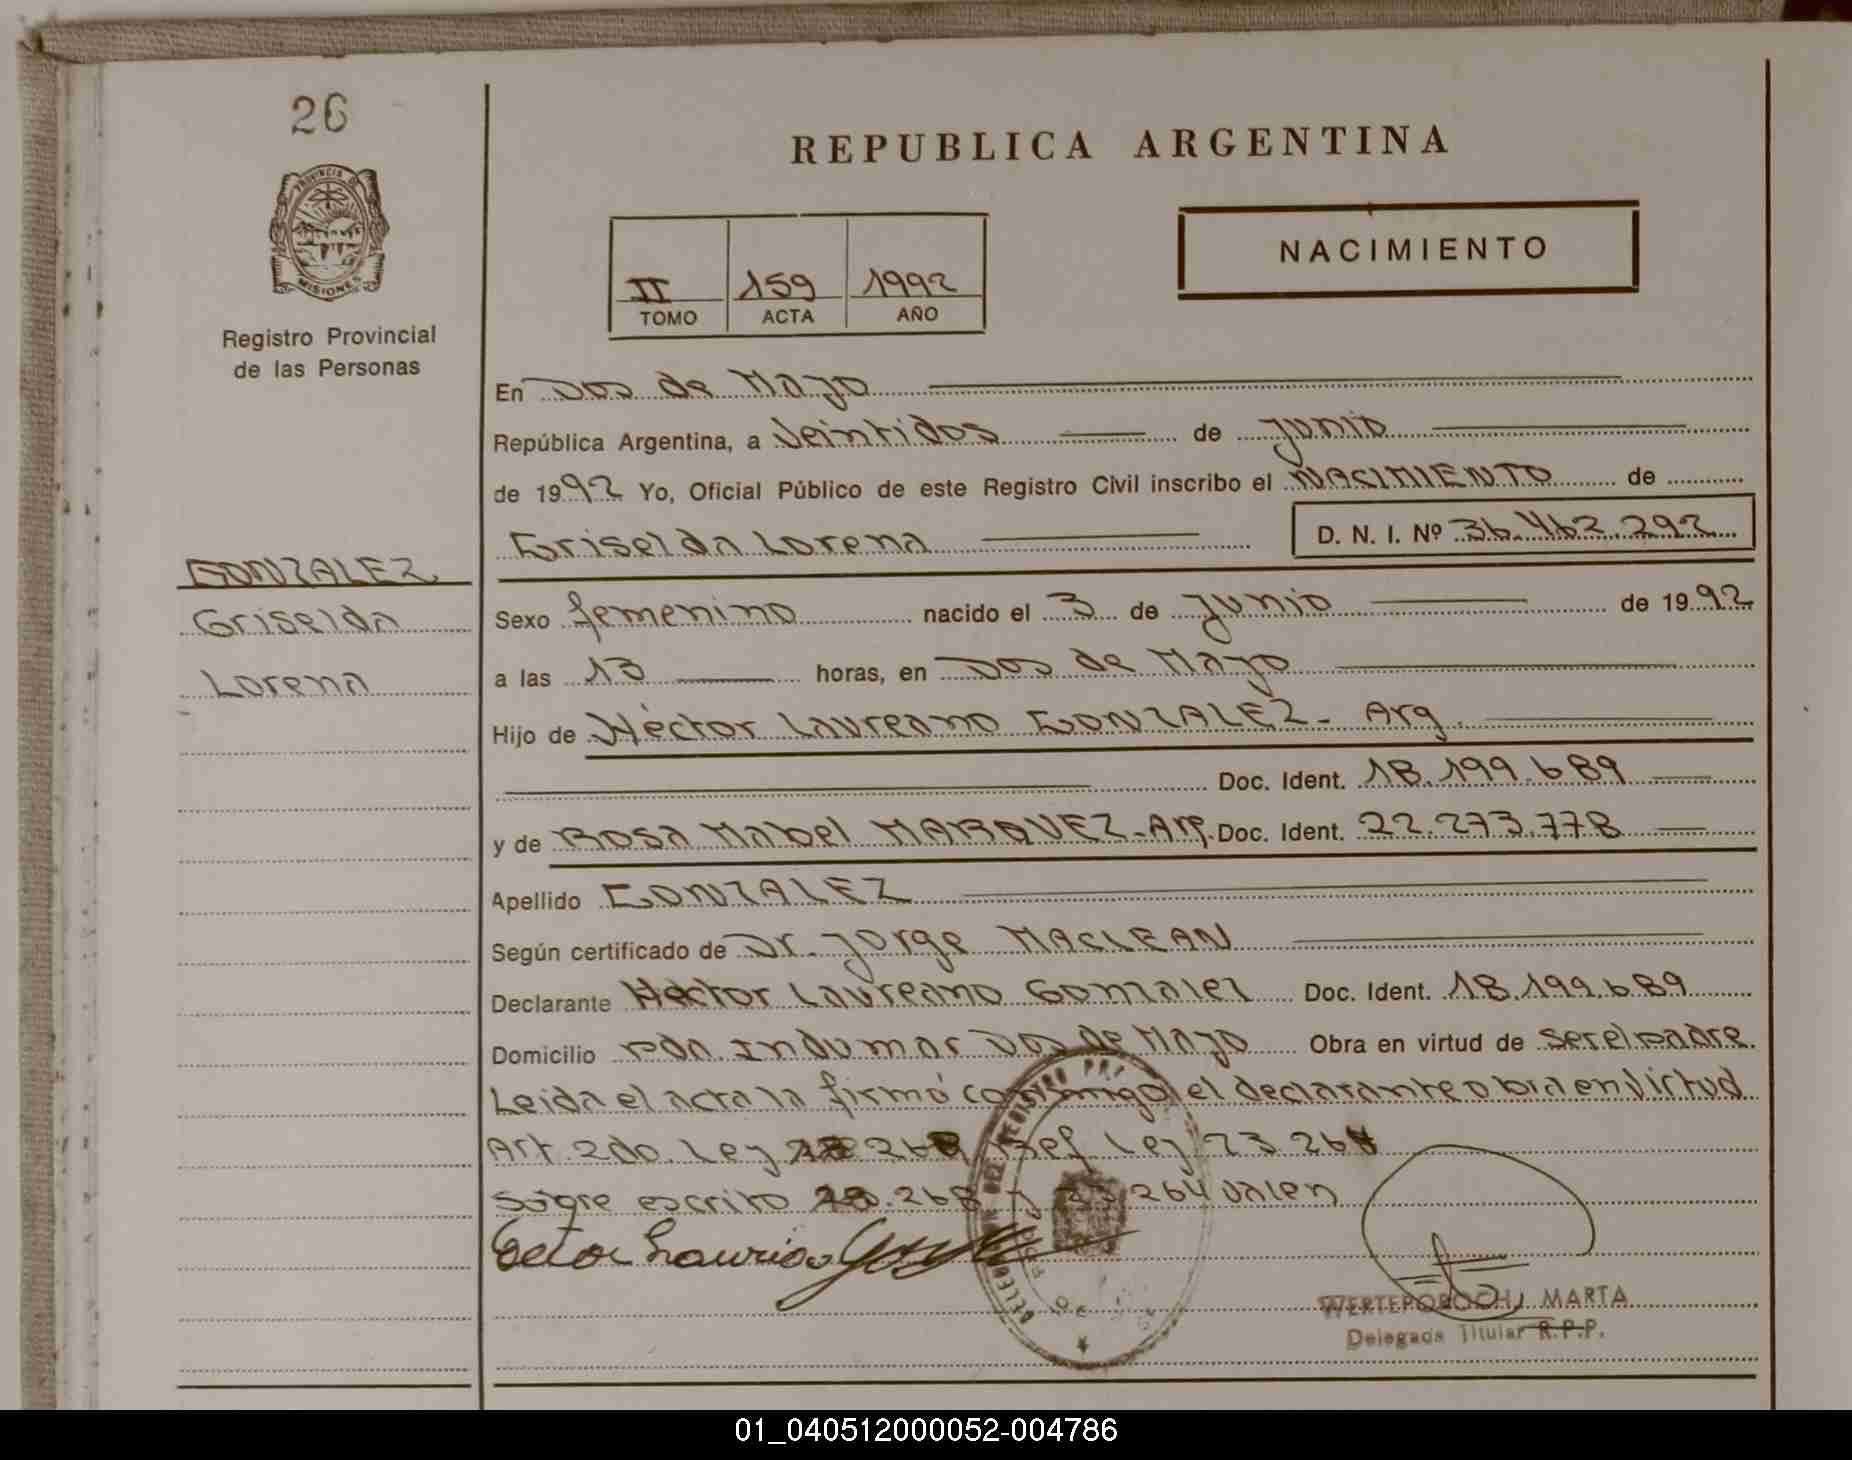 26
PROVINCIA DE
MISIONES
Registro Provincial
de las Personas
GONZALEZ
Griselda
Lorena
REPUBLICA ARGENTINA
NACIMIENTO
II 159 1992
TOMO ACTA AÑO
En Dos de Mayo
República Argentina, a Veintidos de junio
de 1992 Yo, Oficial Público de este Registro Civil inscribo el NACIMIENTO de
Griselda Lorena D. N. I. Nº 36.462.292
Sexo femenino nacido el 3 de junio de 1992
a las 13 horas, en Dos de Mayo
Hijo de Héctor Laureano GONZALEZ - Arg.
Doc. Ident. 18.199.689
y de Rosa Mabel MARQUEZ - Arg. Doc. Ident. 22.273.778
Apellido GONZALEZ
Según certificado de Dr. Jorge MACLEAN
Declarante Héctor Laureano Gonzalez Doc. Ident. 18.199.689
Domicilio Pda. Indumar Dos de Mayo Obra en virtud de ser el padre.
Leida el acta la firmó conmigo el declarante obra en virtud
Art. 2do. Ley Ref Ley 23.264
sobre escrito 23 264 valen
WERTEPOROCH, MARTA
Delegada Titular R.P.P.
01_040512000052-004786